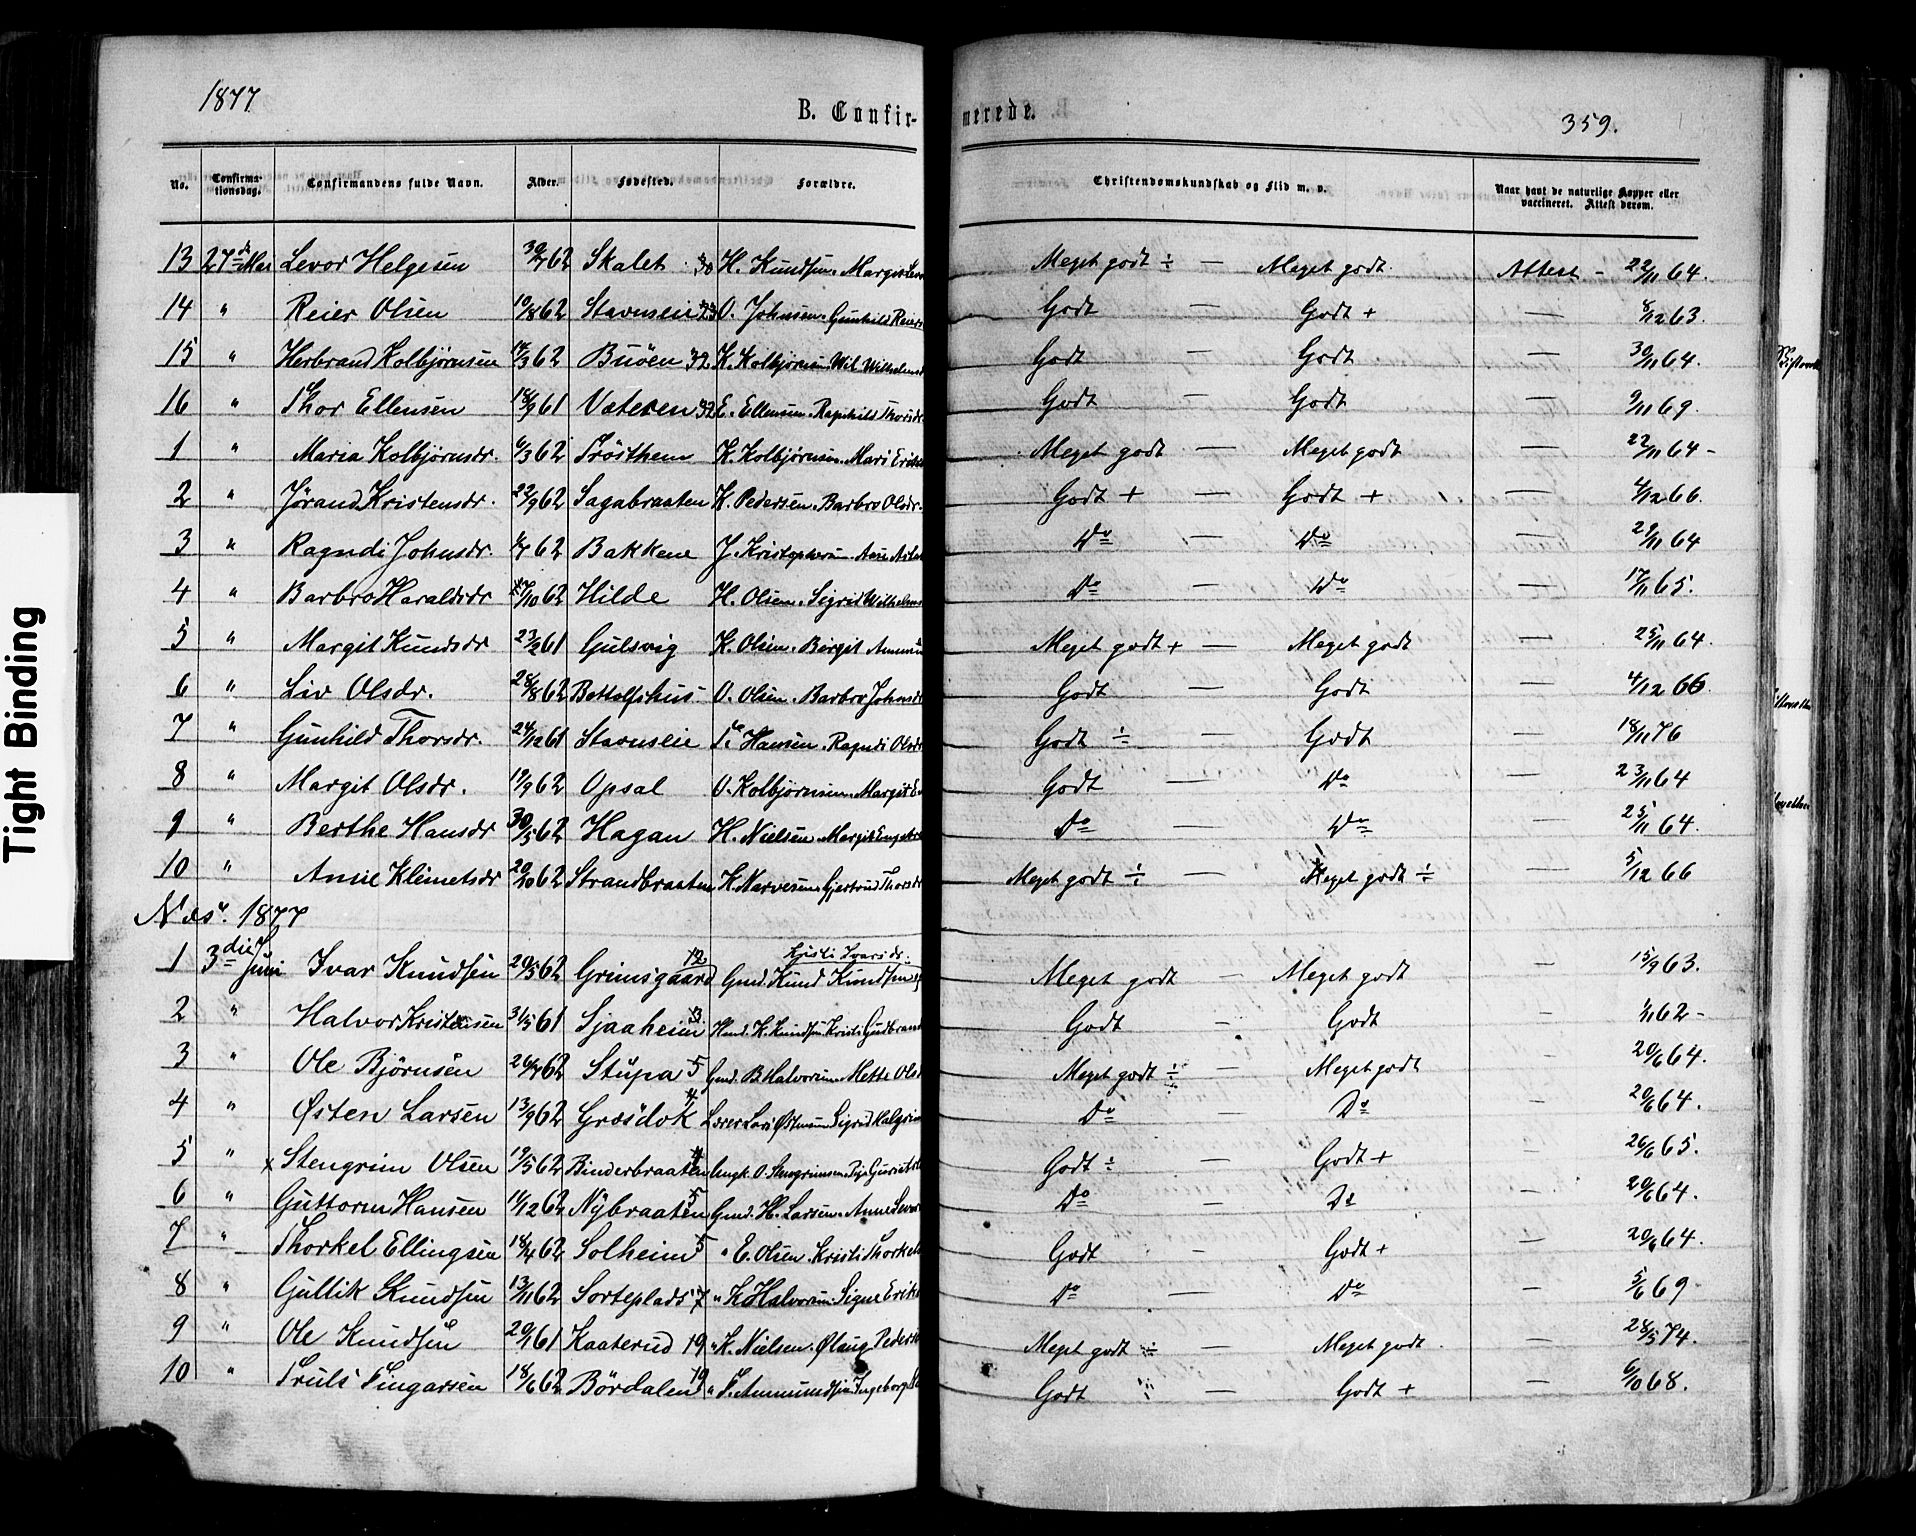 1877
B. Confirmerede.
359.
No. Confirmationsdag. Confirmandens fulde Navn. Alder. Fødested. Forældre. Christendomskundskab og Flid m. v. Naar havt de naturlige Kopper eller vaccineret. Attest derom.
13 27de Mai Levor Helgesen 30/7 62 Skalet 30 H. Knudsen. Margit Meget godt ÷ — Meget godt. Attest — 22/11 64.
14 " Reier Olsen 10/8 62 Stavnseie O. Johnsen. Gunhild Reiers Godt — Godt + — 8/12 63.
15 " Herbrand Kolbjørnsen 62 Buøen 32 K. Kolbjørnsen. Wilhelms Godt — Godt — 30/11 64.
16 " Thor Ellensen 18/9 61 Vateren 32 E. Ellensen. Ragnhild Thorsdr Godt — Godt — 9/11 69.
1 " Maria Kolbjørnsdr. 6/3 62 Trøsthem K. Kolbjørnsen. Mari Eriks Meget godt — Meget godt — 22/11 64 -
2 " Jørand Kristensdr. 22/9 62 Sagabraaten K. Pedersen. Barbro Olsdr. Godt + — Godt + — 4/12 66.
3 " Ragndi Johnsdr. 62 Bakkene J. Do — Do — 29/11 64
4 " Barbro Haraldsdr 27/10 62 Hilde H. Olsen. Sigrid Wilhelms Do — Do — 17/11 65.
5 " Margit Knudsdr 23/2 61 Gulsvig K. Olsen. Birgit Meget godt + — Meget godt — 25/11 64.
6 " Liv Olsdr. 28/8 62 Bottolfshus O. Olsen. Barbro Johnsdr Godt — Godt — 4/12 66.
7 " Gunhild Thorsdr. 24/12 61 Stavnseie T. Hansen. Ragndi Olsdr Godt ÷ — Godt — 18/11 76
8 " Margit Olsdr. 19/9 62 Opsal O. Kolbjørnsen. Margit Godt — Do — 23/11 64
9 " Berthe Hansdr 30/5 62 Hagan H. Nielsen. Margit Do — Do — 25/11 64.
10 " Anne Klemetsdr 20/10 62 Strandbraaten K. Narvesen. Gjertrud Thorsdr Meget godt ÷ — Meget godt ÷ — 5/12 66
Næs. 1877
Kristi Ivarsdr.
1 3die Juni Ivar Knudsen 20/5 62 Grimsgaard 12 Gmd. Knud Knudsen Meget godt — Meget godt — 15/9 63.
2 " Halvor Kristensen 31/5 61 Sjaaheim K. Knudsen Kristi Gudbrand Godt — Godt — 62 -
3 " Ole Bjørnsen 62 Stupa 5 Gmd. B. Halvorsen. Mette Olsd Meget godt ÷ — Meget godt — 20/6 64.
4 " Østen Larsen 13/9 62 Græsdok 4 Lærer Lars Østensen Sigrid Halgrim Do — Do — 20/6 64.
5 " x Stengrim Olsen 19/5 62 Binderbraaten Ungk. O. Stengrimsen. Pige Godt ÷ — Godt + — 26/6 65.
6 " Guttorm Hansen 62 Nybraaten 5 Gmd. H. Larsen. Anne Do — Do — 20/6 64.
7 " Thorkel Ellingsen 18/4 62 Solheim 5 " E. Olsen. Kristi Thorkels Godt — Godt + — 20/6 64.
8 " Gullik Knudsen 13/11 62 Sorteplads 7 " K. Halvorsen Signe Eriks Do — Do — 5/6 69
9 " Ole Knudsen 20/1 61 Kaaterud 19 " K. Nielsen. Ølaug Peders Meget godt ÷ — Meget godt — 28/5 74.
10 " Truls Fingarsen 18/6 62 Børdalen 19 " F. Ammundsen Ingeborg Godt ÷ — Godt + — 6/10 68.
Tight Binding